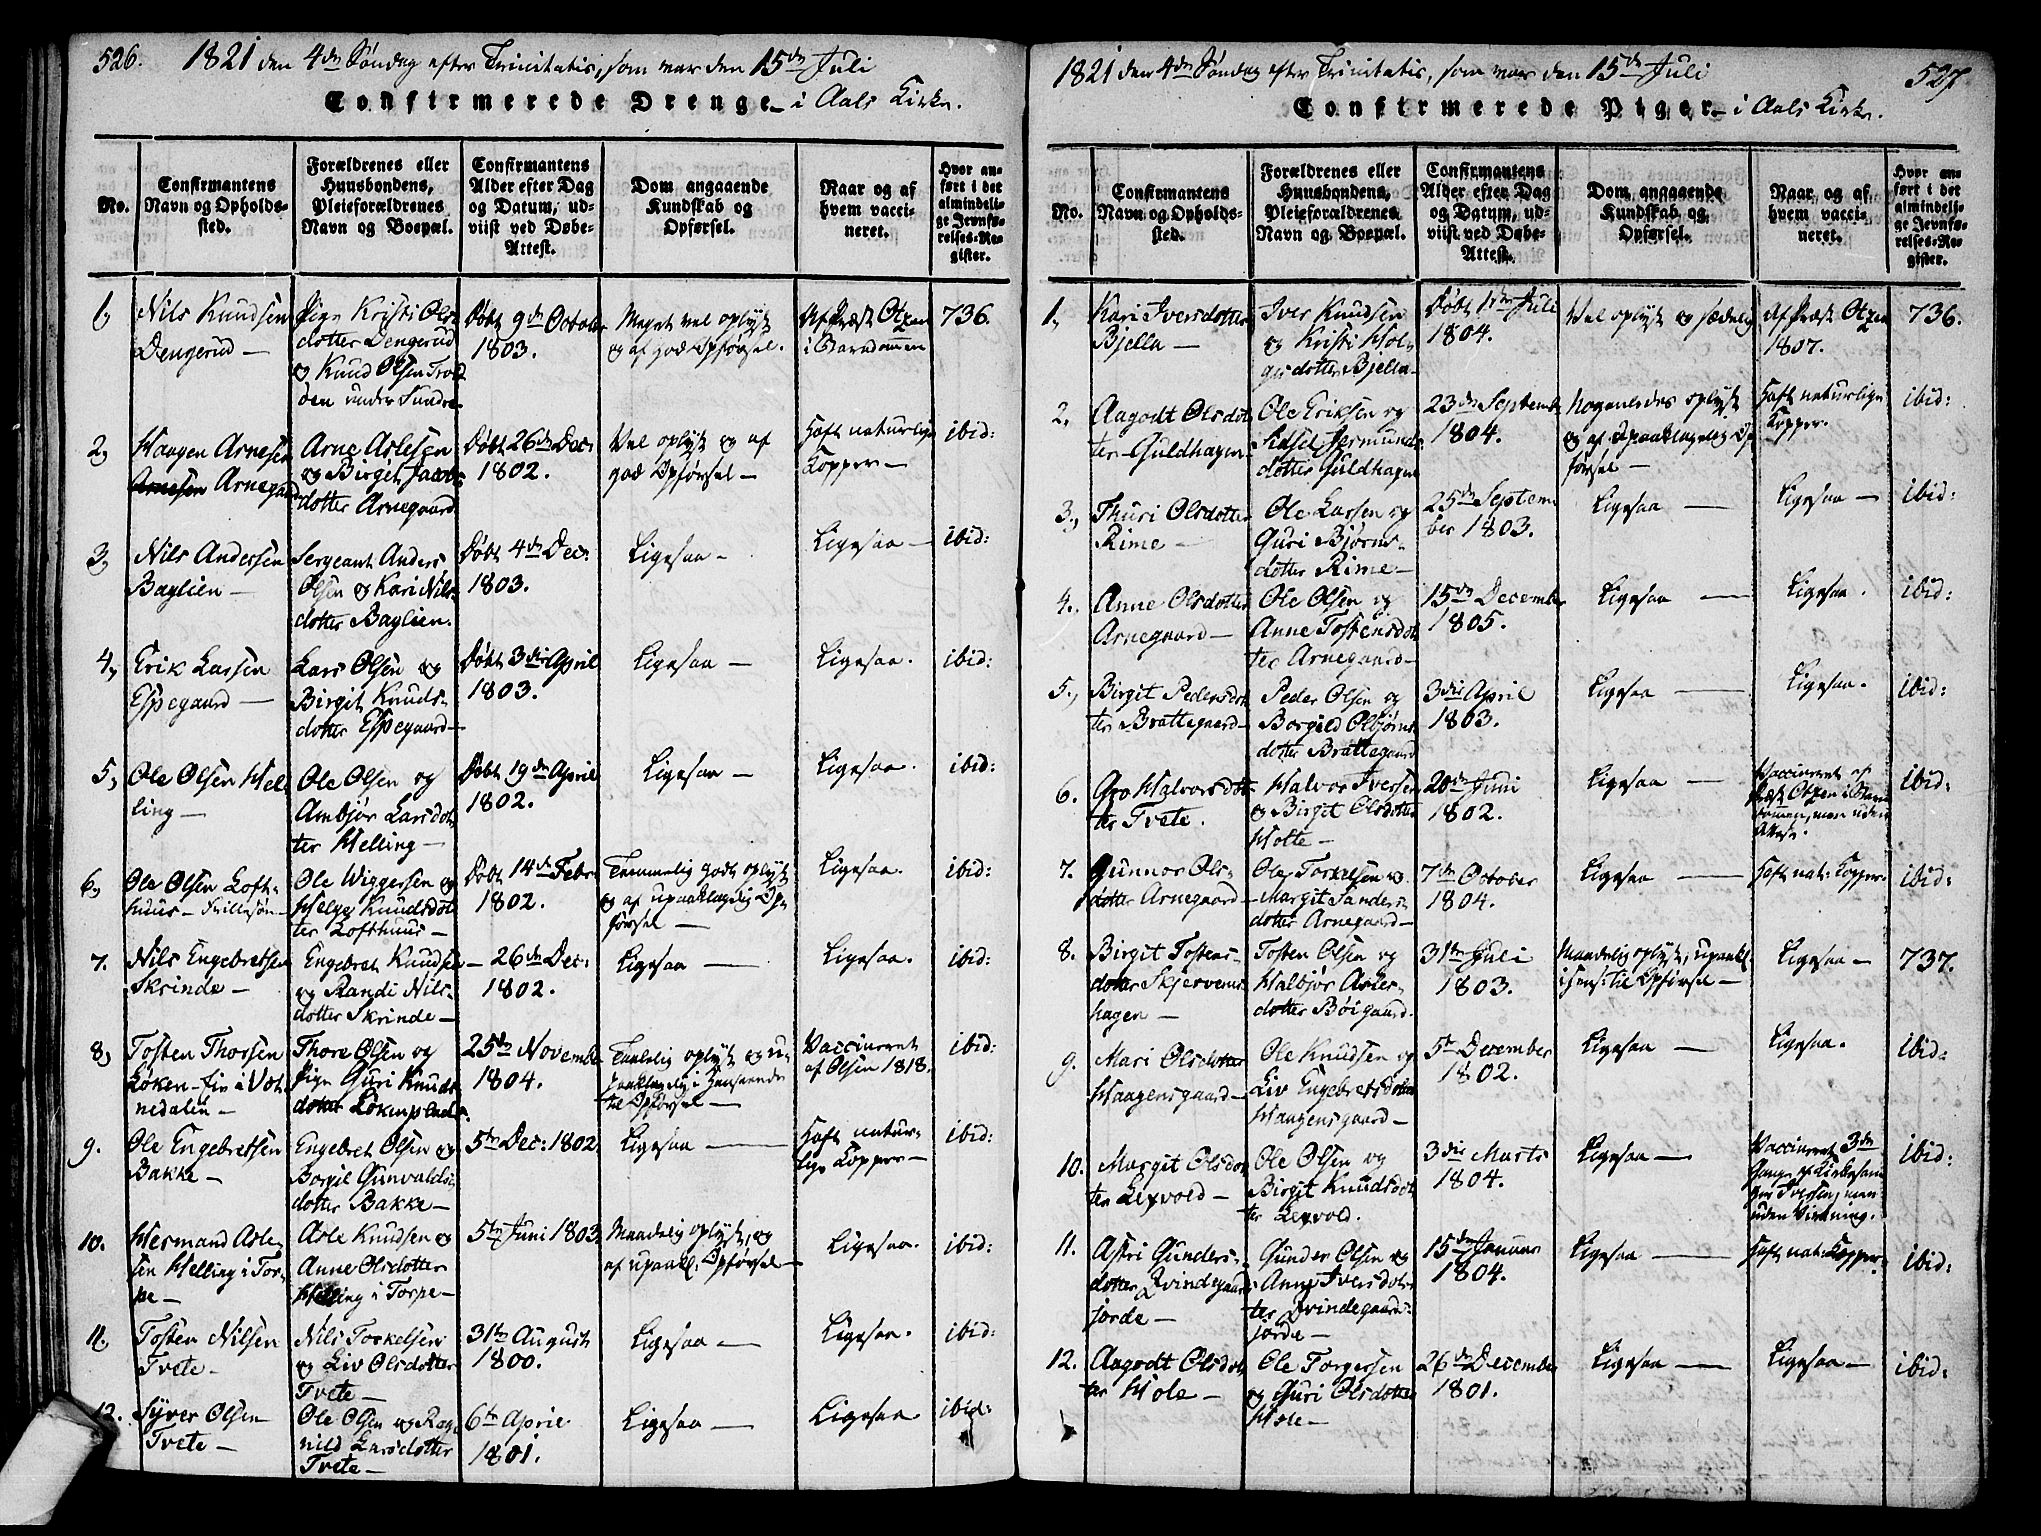 526.
1821 den 4de Søndag efter Trinitatis, som var den 15de Juli
Confirmerede Drenge i Aals Kirke.
No.
Confirmantens Navn og Opholds-
sted.
Forældrenes eller
Huusbondens,
Pleieforældrenes
Navn og Boepæl.
Confirmantens
Alder efter Dag
og Datum, ud-
viist ved Døbe-
Attest.
Dom angaaende
Kundskab og
Opførsel.
Naar og af
hvem vacci-
neret.
Hvor an-
ført i det
almindeli-
ge Jevnfø-
relses-Re-
gister.
1,
Nils Knudsen
Dengerud —
Pige Kristi Ols-
dotter Dengerud
og Knud Olsen Trod
den under Sundre
Døbt 9de October
1803.
Meget vel oplyst
og af god Opførsel.
Af Præst Otzen
i Barndommen
736.
2,
Haagen Arnesen
Arnesen Arnegaard
Arne Aslesen
og Birgit Jacobs-
dotter Arnegaard
Døbt 26de Dec:
1802.
Vel oplyst og af
god Opførsel —
Haft naturlige
Kopper —
ibid:
3,
Nils Andersen
Baglien —
Sergeant Anders
Olsen og Kari Nils-
dotter Baglien.
Døbt 4de Dec:
1803.
Ligesaa —
Ligesaa —
ibid:
4,
Erik Larsen
Espegaard —
Lars Olsen og
Birgit Knuds-
dotter Espegaard —
Døbt 3die April
1803.
Ligesaa —
Ligesaa.
ibid:
5,
Ole Olsen Hel-
ling —
Ole Olsen og
Ambjør Larsdot-
ter Helling —
Døbt 19de April
1802.
Ligesaa —
Ligesaa.
ibid:
6,
Ole Olsen Loft-
huus — Frillesøn —
Ole Wiggersen og
Helge Knudsdot-
ter Lofthuus —
Døbt 14de Febr
1802.
Temmelig godt oplyst
og af upaaklagelig Op-
førsel —
Ligesaa.
ibid:
7.
Nils Engebretsen
Skrinde —
Engebret Knudsen
og Randi Nils-
dotter Skrinde —
— 26de Dec:
1802.
Ligesaa —
Ligesaa.
ibid:
8,
Tosten Thorsen
Løken — fiv i Vat
nedalen —
Thore Olsen og
Pige Guri Knuds
dotter Løkensplads
25de Novembr
1804.
Taalelig oplyst og u-
paaklagelig i Henseende
til Opførsel —
Vaccineret
af Olsen 1818.
ibid:
9.
Ole Engebretsen
Bakke —
Engebret Olsen og
Borgil Gunvalds-
dotter Bakke —
5te Dec: 1802.
Ligesaa —
Haft natur-
lige Kopper —
ibid:
10.
Hermand Asle-
sen Helling i Tor-
pe —
Asle Knudsen og
Anne Olsdotter
Helling i Torpe —
5te Juni 1803.
Maadelig oplyst, og
af upaakl. Opførsel —
Ligesaa.
ibid:
11.
Tosten Nilsen
Tvete —
Nils Torkelsen
og Liv Olsdotter
Tvete —
31te August
1800.
Ligesaa —
Ligesaa.
ibid:
12.
Syver Olsen
Tvete —
Ole Olsen og Rag-
nild Larsdotter
Tvete —
6te April
1801.
Ligesaa —
Ligesaa.
ibid:
1821 den 4de Søndag efter Trinitatis, som var den 15de Juli
527.
Confirmerede Piger — i Aals Kirke.
No.
Confirmantens
Navn og Opholds-
sted.
Forældrenes eller
Huusbondens,
Pleieforældrenes
Navn og Boepæl.
Confirmantens
Alder efter Dag
og Datum, ud-
viist ved Døbe-
Attest.
Dom angaaende
Kundskab og
Opførsel.
Naar og af
hvem vacci-
neret.
Hvor an-
ført i det
almindeli-
ge Jevnfø-
relses-Re-
gister.
1,
Kari Iversdotter
Bjella —
Iver Knudsen
og Kristi Hol-
gesdotter Bjella
Døbt 1ste Juli
1804.
Vel oplyst og sædelig
Af Præst Otzen
1807.
736.
2,
Aagodt Olsdot
ter Guldhagen
Ole Eriksen og
Sidsel Jermunds
dotter Guldhagen
23de Septembr
1804.
Nogenledes oplyst
og af upaaklagelig Op
førsel —
Haft naturlige
Kopper.
ibid:
3.,
Thuri Olsdotter
Rime —
Ole Larsen og
Guri Bjørns-
dotter Rime —
25de Septem
ber 1803.
Ligesaa —
Ligesaa —
ibid:
4.
Anne Olsdotter
Arnegaard —
Ole Olsen og
Anne Tostensdot
ter Arnegaard —
15de December
1805.
Ligesaa —
Ligesaa.
ibid:
5.,
Birgit Pedersdot
ter Brattegaard —
Peder Olsen og
Borgild Olbjørns
dotter Brattegaard
3die April
1803.
Ligesaa —
Ligesaa.
ibid:
6.
Gro Halvorsdot-
ter Tvete.
Halvor Iversen
og Birgit Olsdotter
Holte —
20de Juni
1802.
Ligesaa —
Vaccineret af
Præst Otzen i Barn
dommen, men uden
Attest.
ibid:
7.
Gunnor Ols-
dotter Arnegaard —
Ole Torkelsen og
Margit Sanders-
dotter Arnegaard —
7de October
1804.
Ligesaa —
Haft nat: Kopper.
ibid:
8.
Birgit Tostens-
dotter Skjervems
hagen —
Tosten Olsen og
Halbjør Asles-
dotter Bøigaard.
31te Juli
1803.
Maadelig oplyst, upaakl.
i Hens: til Opførsel —
Ligesaa —
737.
9.
Mari Olsdotter
Haagensgaard —
Ole Knudsen og
Liv Engebretsdotter
Haagensgaard —
5te December
1802.
Ligesaa —
Ligesaa.
ibid:
10.
Margit Olsdot
ter Lexvold —
Ole Olsen og
Birgit Knudsdot
ter Lexvold.
3die Marts
1804.
Ligesaa —
Vaccineret 3de
Gange af Kirkesan
ger Iversen, men
uden Virkning.
ibid:
11.
Astri Gunders-
dotter Qvindegaards
jorde —
Gunder Olsen og
Anne Iversdot-
ter Qvindegaards-
jorde —
15de Januar
1804.
Ligesaa —
Haft nat: Kopper.
ibid:
12.
Aagodt Olsdot
ter Hole —
Ole Torgersen
og Guri Olsdotter
Hole —
26de December
1801.
Ligesaa —
Ligesaa —
ibid: